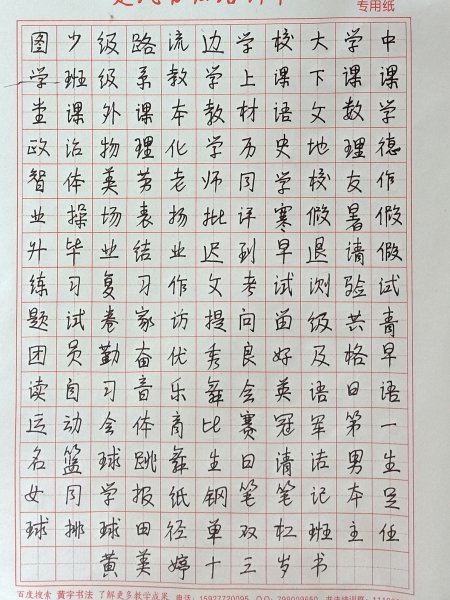 专用纸
图少级路流边学校大学中
学班级系教学上课下课课
堂课外课本教材语文数学
政治物理化学历史地理德
智体美劳老师同学校友作
业操场表扬批评寒假暑假
升毕业结业迟到早退请假
练习复习作文考试测验试
题试卷家访提问留级共青
团员勤奋优秀良好及格早
读自习音乐舞会英语日语
运动会体育比赛冠军第一
名篮球跳舞生日请洁男生
女同学报纸钢笔笔记本足
球排球田径单双杠班主任
黄美婷十三岁书
百度搜索 黄字书法 了解更多教学成果